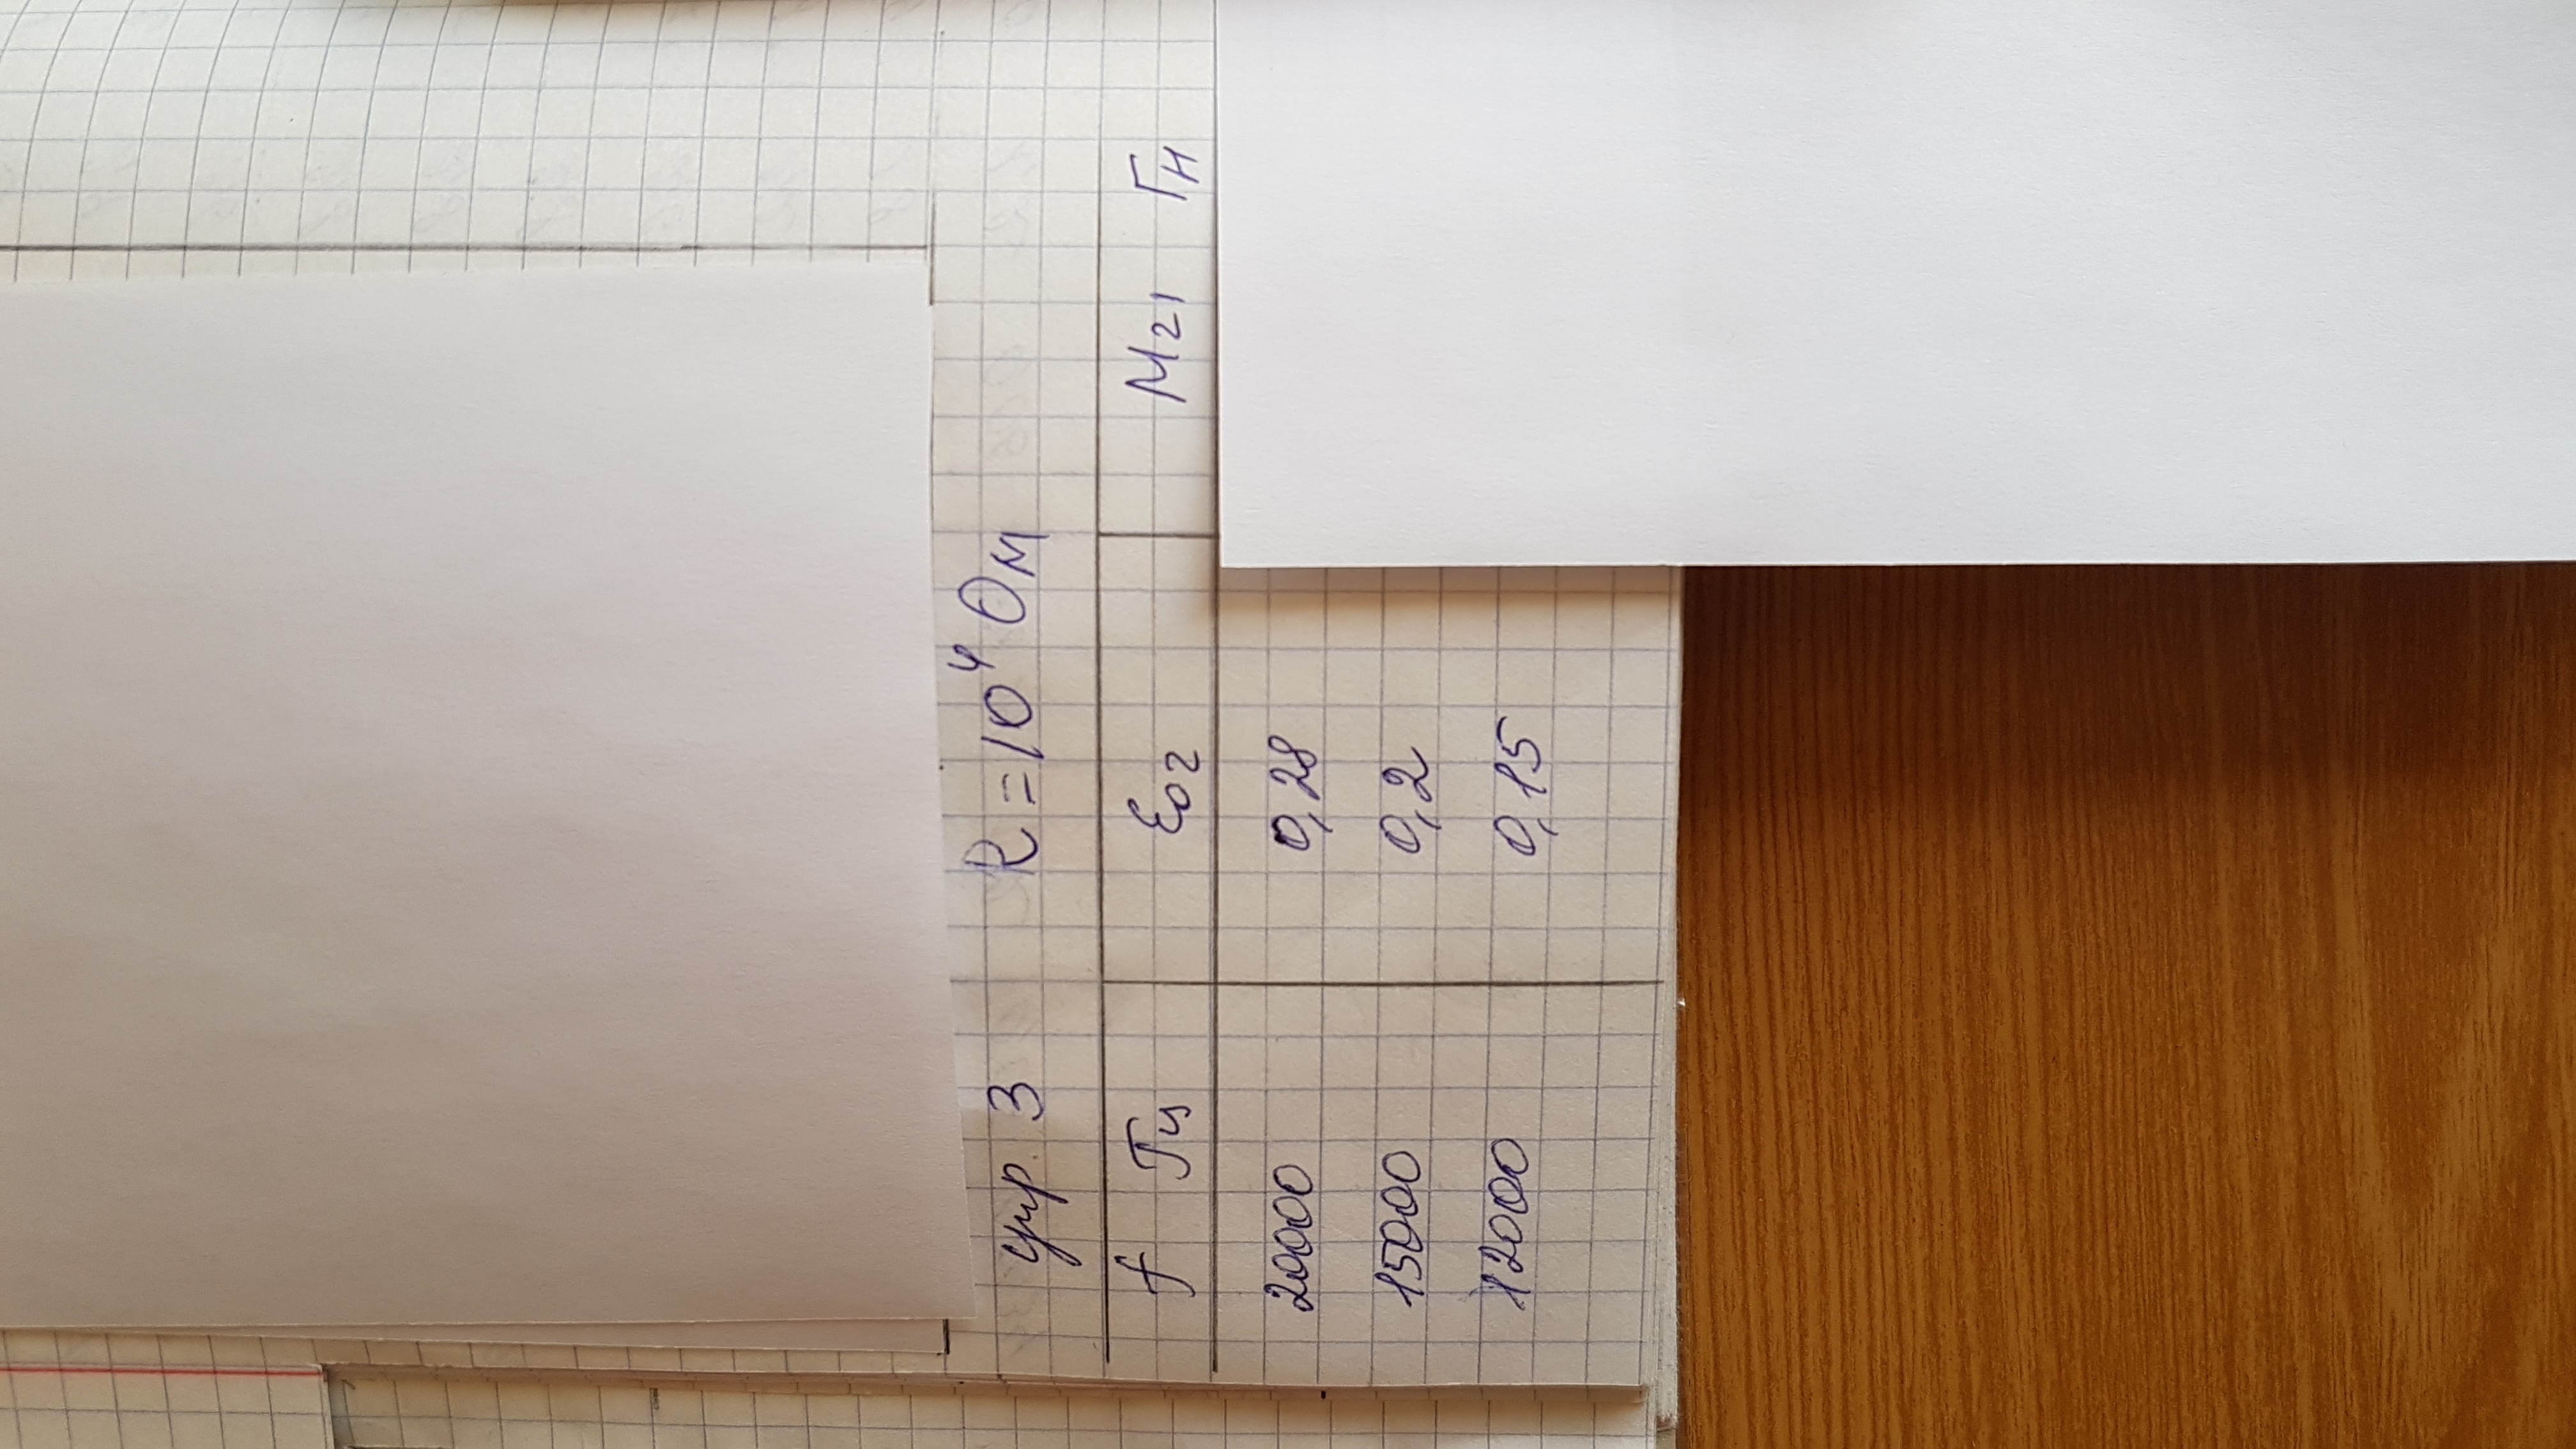 упр. 3 R = 10⁴ Ом
f Гц ε₀₂ M₂₁ Гн
20000 0,28
15000 0,2
12000 0,15